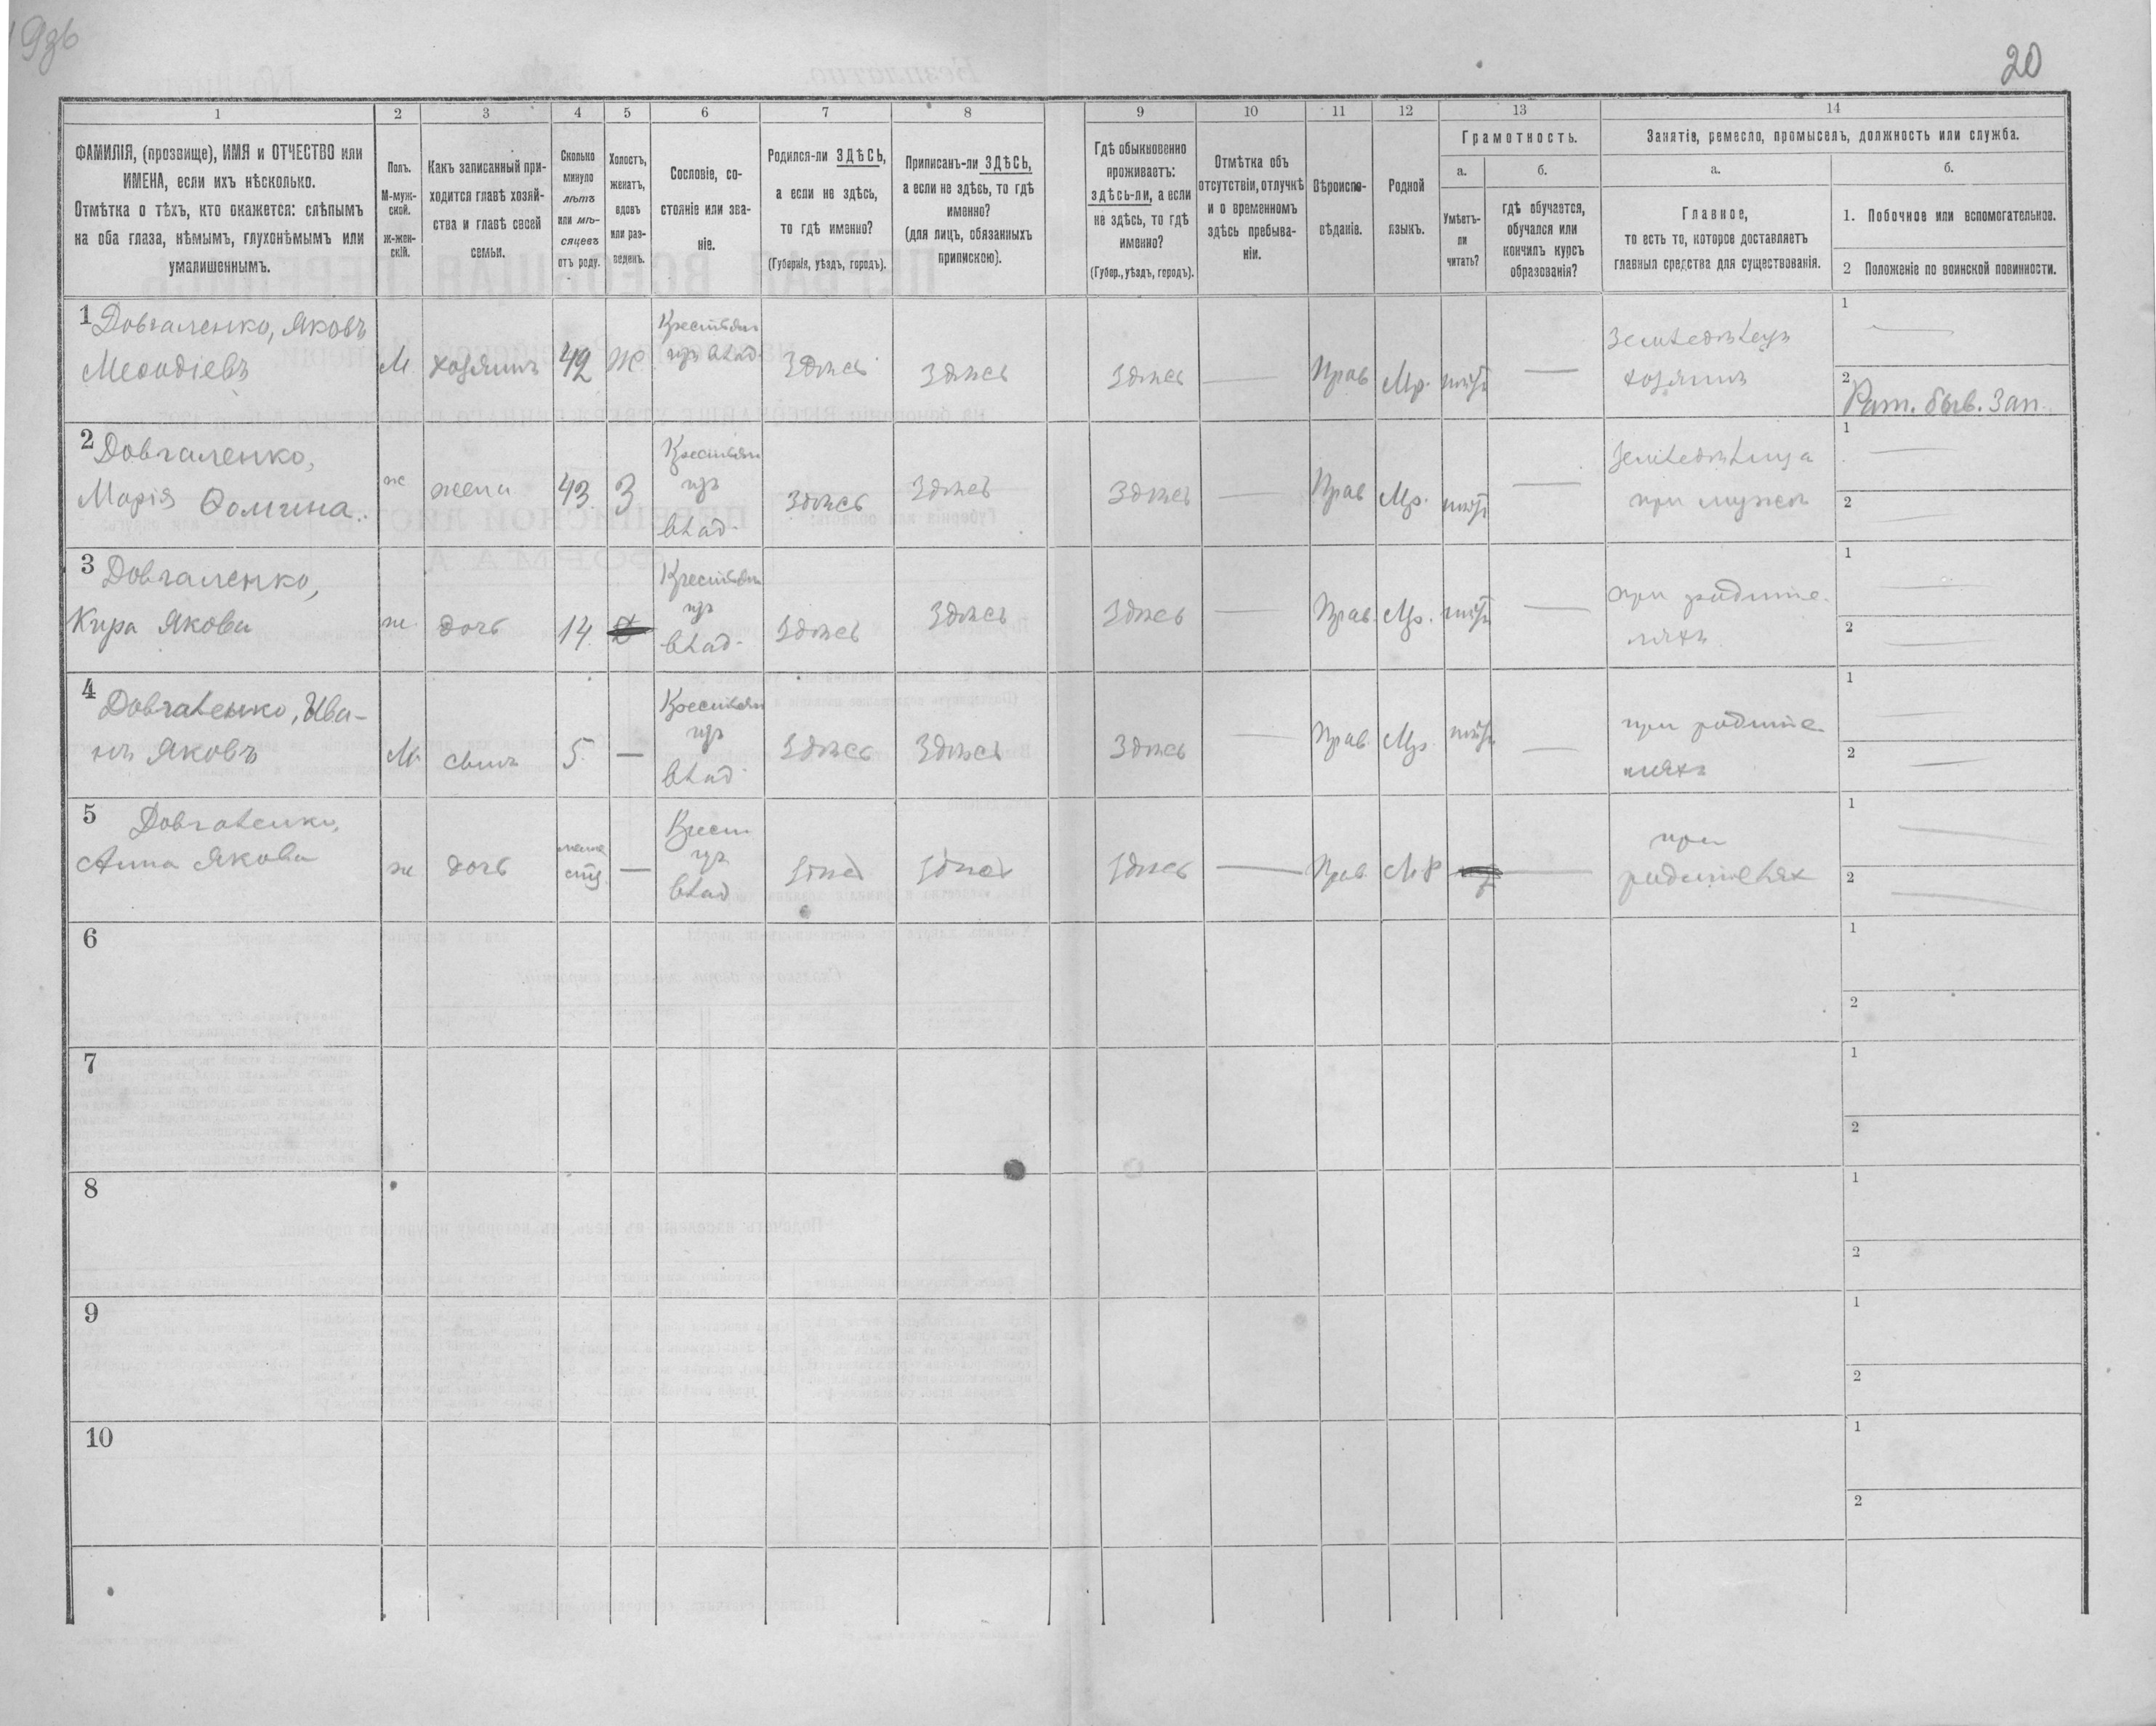 20
1
2
3
4
5
6
7
8
9
10
11
12
13
14
ФАМИЛІЯ, (прозвище), ИМЯ и ОТЧЕСТВО или
ИМЕНА, если ихъ нѣсколько.
Отмѣтка о тѣхъ, кто окажется: слѣпымъ
на оба глаза, нѣмымъ, глухонѣмымъ или
умалишеннымъ.
Полъ.
М-муж-
ской.
ж-жен-
скій.
Какъ записанный при-
ходится главѣ хозяй-
ства и главѣ своей
семьи.
Сколько
минуло
лѣтъ
или мѣ-
сяцевъ
отъ роду.
Холостъ,
женатъ,
вдовъ
или раз-
веденъ.
Сословіе, со-
стояніе или зва-
ніе.
Родился-ли ЗДѢСЬ,
а если не здѣсь,
то гдѣ именно?
(Губернія, уѣздъ, городъ).
Приписанъ-ли ЗДѢСЬ,
а если не здѣсь, то гдѣ
именно?
(для лицъ, обязанныхъ
припискою).
Гдѣ обыкновенно
проживаетъ:
здѣсь-ли, а если
не здѣсь, то гдѣ
именно?
(Губер., уѣздъ, городъ).
Отмѣтка объ
отсутствіи, отлучкѣ
и о временномъ
здѣсь пребыва-
ніи.
Вѣроиспо-
вѣданіе.
Родной
языкъ.
Грамотность.
а.
Умѣетъ-
ли
читать?
б.
гдѣ обучается,
обучался или
кончилъ курсъ
образованія?
Занятіе, ремесло, промыселъ, должность или служба.
а.
Главное,
то есть то, которое доставляетъ
главныя средства для существованія.
б.
1. Побочное или вспомогательное.
2 Положеніе по воинской повинности.
1 Довгаленко, Яковъ
Меѳодіевъ
М хозяинъ 42 Ж
Крестьян
изъ влад.
Здѣсь Здѣсь Здѣсь — Прав Мр. —
Земледѣлецъ
хозяинъ
1 —
2 Рат. быв. Зап.
2 Довгаленко,
Марія Ѳомина.
ж жена 43 З
Крестьян
изъ
влад.
Здѣсь Здѣсь Здѣсь — Прав Мр. —
Земледѣлица
при мужѣ
1 —
2 —
3 Довгаленко,
Кира Якова
ж. дочь 14.
Крестьян
изъ
влад.
Здѣсь Здѣсь Здѣсь — Прав. Мр. —
при родите
ляхъ
1 —
2 —
4 Довгаленко, Ива-
нъ Яковъ
М. сынъ 5 —
Крестьян
изъ
влад.
Здѣсь Здѣсь Здѣсь — Прав. Мр. —
при родите
ляхъ
1 —
2 —
5 Довгаленко,
Анна Якова
ж дочь —
Крест
изъ
влад
Здѣсь Здѣсь Здѣсь — Прав. МР —
при
родителях
1 —
2 —
6
1
2
7
1
2
8
1
2
9
1
2
10
1
2